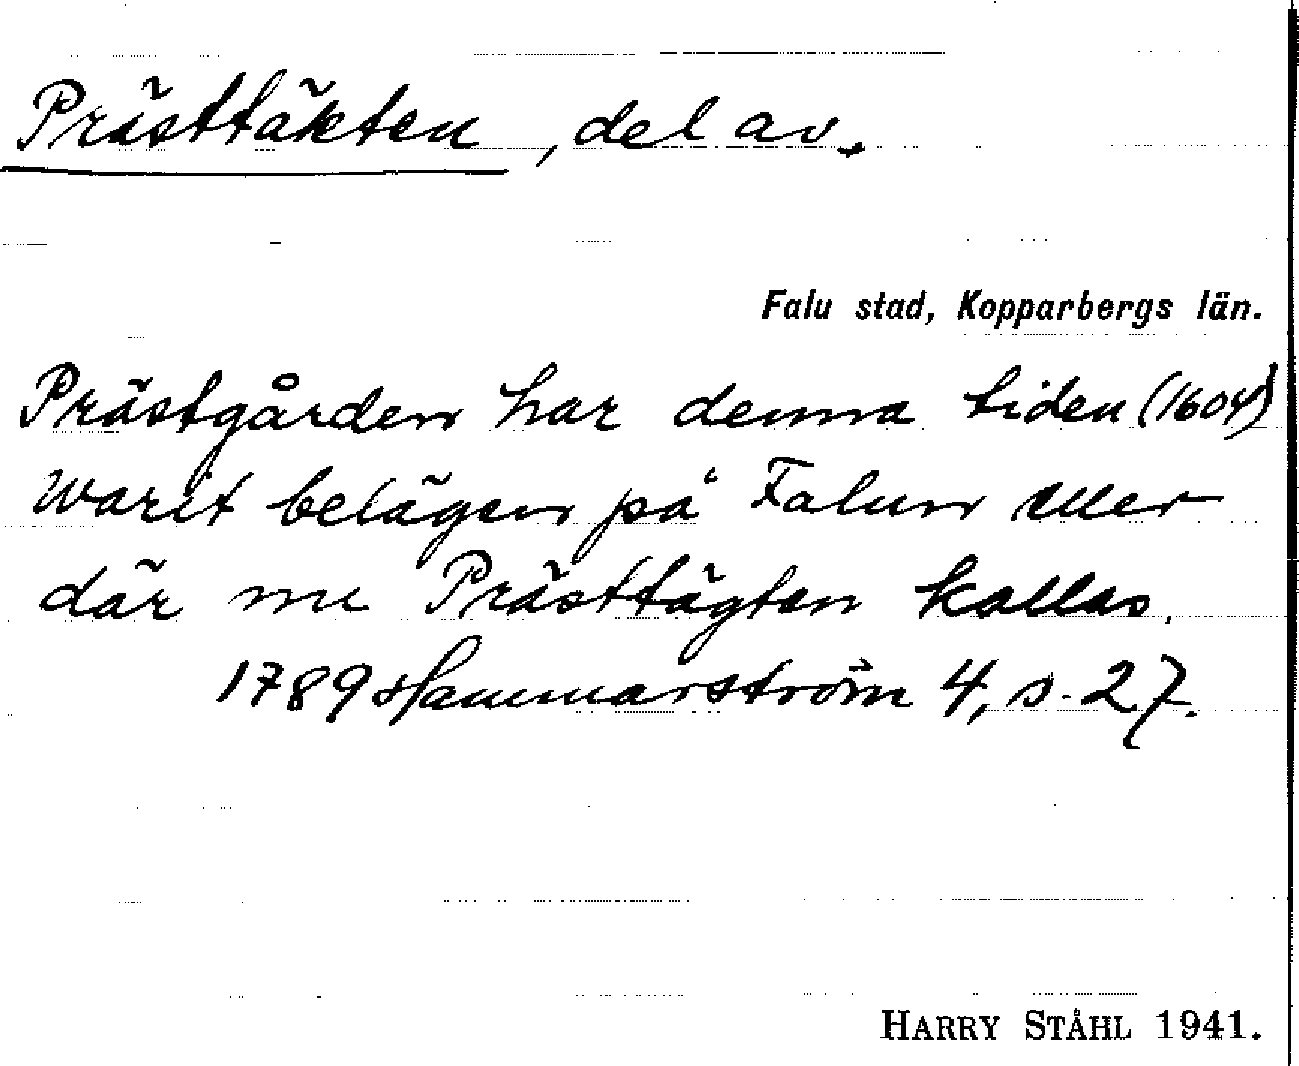 Prästtäkten, del av.
Falu stad, Kopparbergs län.
Prästgården har denna tiden (1604)
warit belägen på Falun eller
där nu Prästtägten kallas.
1789 Hammarström 4, s. 27.
HARRY STÅHL 1941.